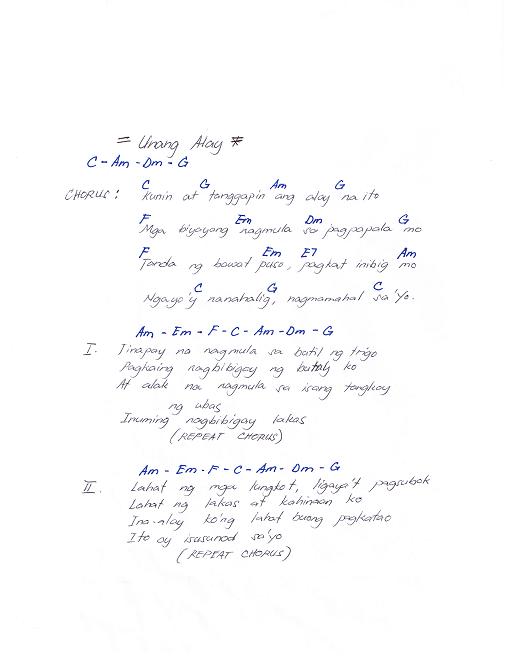 = Unang Alay *
C - Am - Dm - G
C G Am G
CHORUS: Kunin at tanggapin ang alay na ito
F Em Dm G
Mga biyayang nagmula sa pagpapala mo
F Em E7 Am
Tanda ng bawat puso, pagkat inibig mo
C G C
Ngayo'y nananahalig, nagmamahal sa'yo.
Am - Em - F - C - Am - Dm - G
I. Tinapay na nagmula sa butil ng trigo
Pagkaing nagbibigay ng buhay ko
At alak na nagmula sa isang tangkay
ng ubas
Inuming nagbibigay lakas
(REPEAT CHORUS)
Am - Em - F - C - Am - Dm - G
II. Lahat ng mga lungkot, ligaya't pagsubok
Lahat ng lakas at kahinaan ko
Ina-alay ko'ng lahat buong pagkatao
Ito ay isusunod sa'yo
(REPEAT CHORUS)